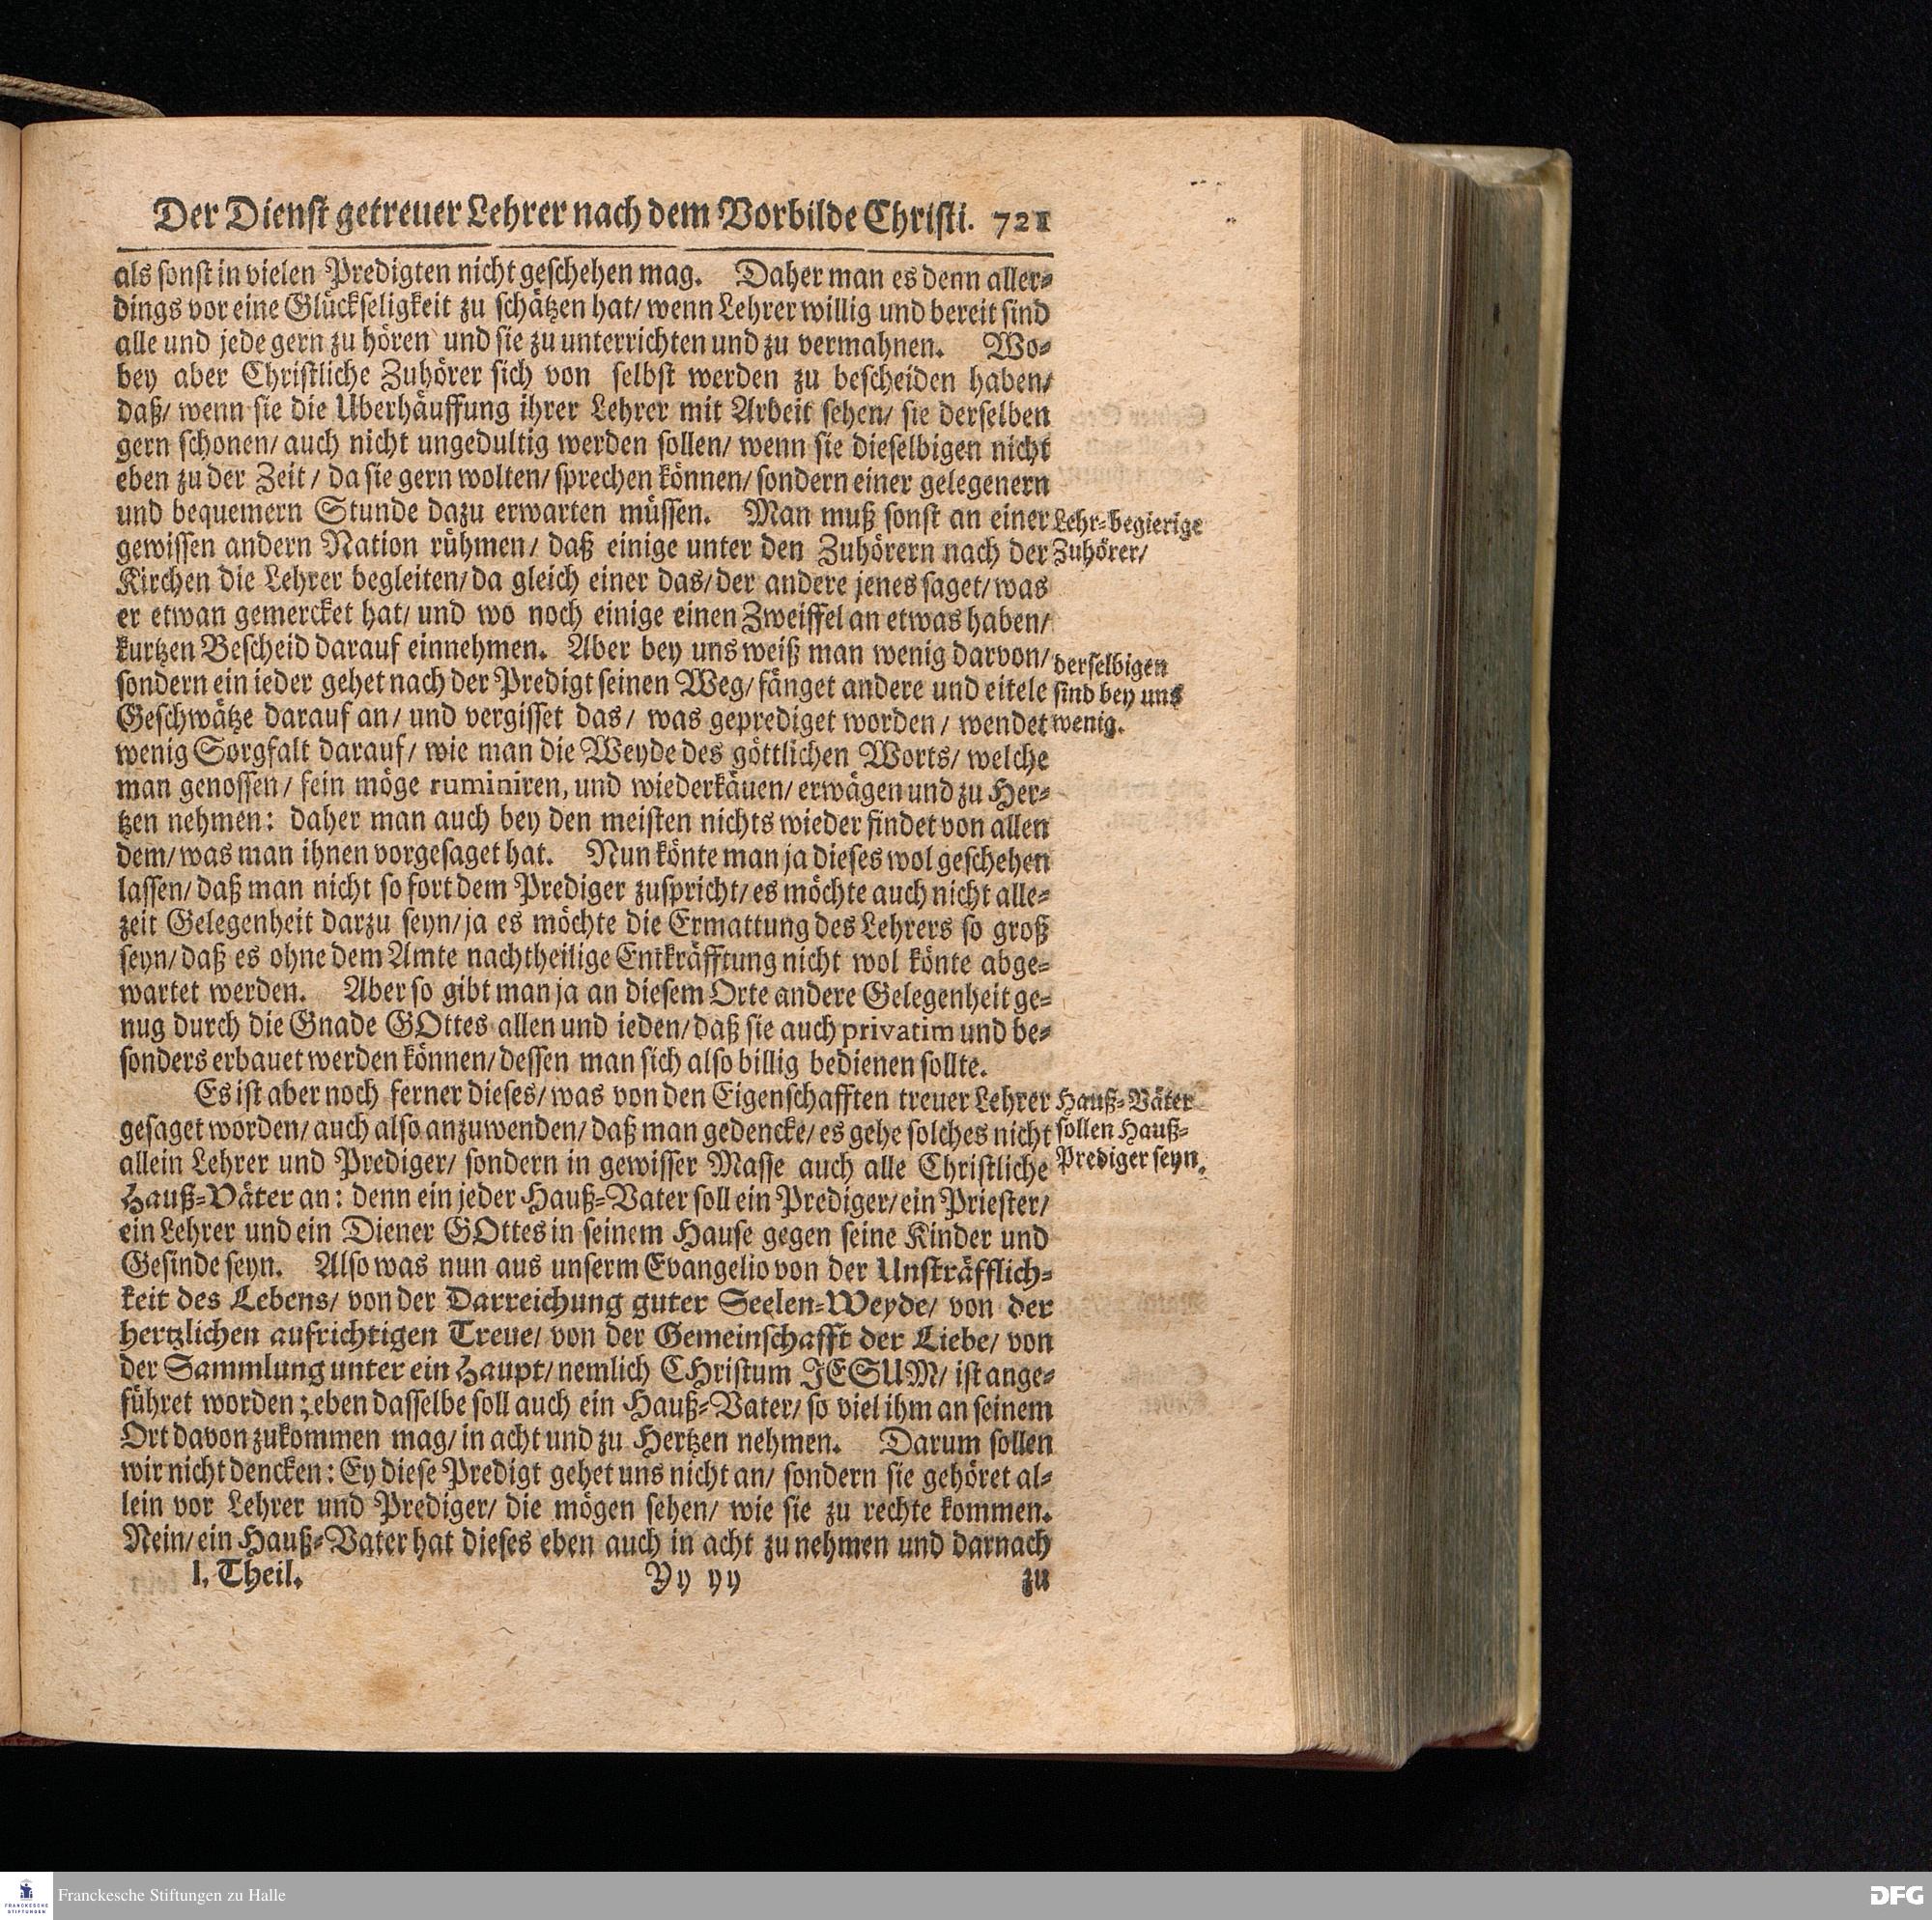 Der Dienst getreuer Lehrer nach dem Vorbilde Christi. 721
als sonst in vielen Predigten nicht geschehen mag. Daher man es denn aller-
dings vor eine Glückseligkeit zu schätzen hat/ wenn Lehrer willig und bereit sind
alle und jede gern zu hören und sie zu unterrichten und zu vermahnen. Wo-
bey aber Christliche Zuhörer sich von selbst werden zu bescheiden haben/
daß/ wenn sie die Uberhäuffung ihrer Lehrer mit Arbeit sehen/ sie derselben
gern schonen/ auch nicht ungedultig werden sollen/ wenn sie dieselbigen nicht
eben zu der Zeit / da sie gern wolten/ sprechen können/ sondern einer gelegenern
und bequemern Stunde dazu erwarten müssen. Man muß sonst an einer
gewissen andern Nation rühmen/ daß einige unter den Zuhörern nach der
Kirchen die Lehrer begleiten/ da gleich einer das/ der andere jenes saget/ was
er etwan gemercket hat/ und wo noch einige einen Zweiffel an etwas haben/
kurtzen Bescheid darauf einnehmen. Aber bey uns weiß man wenig darvon/
sondern ein ieder gehet nach der Predigt seinen Weg/ fänget andere und eitele
Geschwätze darauf an/ und vergisset das/ was geprediget worden / wendet
wenig Sorgfalt darauf/ wie man die Weyde des göttlichen Worts/ welche
man genossen/ fein möge ruminiren, und wiederkäuen/ erwägen und zu Her-
tzen nehmen: daher man auch bey den meisten nichts wieder findet von allen
dem/ was man ihnen vorgesaget hat. Nun könte man ja dieses wol geschehen
lassen/ daß man nicht so fort dem Prediger zuspricht/ es möchte auch nicht alle-
zeit Gelegenheit darzu seyn/ ja es möchte die Ermattung des Lehrers so groß
seyn/ daß es ohne dem Amte nachtheilige Entkräfftung nicht wol könte abge-
wartet werden. Aber so gibt man ja an diesem Orte andere Gelegenheit ge-
nug durch die Gnade GOttes allen und ieden/ daß sie auch privatim und be-
sonders erbauet werden können/ dessen man sich also billig bedienen sollte.
Es ist aber noch ferner dieses/ was von den Eigenschafften treuer Lehrer
gesaget worden/ auch also anzuwenden/ daß man gedencke/ es gehe solches nicht
allein Lehrer und Prediger/ sondern in gewisser Masse auch alle Christliche
Hauß-Väter an: denn ein jeder Hauß-Vater soll ein Prediger/ ein Priester/
ein Lehrer und ein Diener GOttes in seinem Hause gegen seine Kinder und
Gesinde seyn. Also was nun aus unserm Evangelio von der Unsträfflich-
keit des Lebens/ von der Darreichung guter Seelen-Weyde/ von der
hertzlichen aufrichtigen Treue/ von der Gemeinschafft der Liebe/ von
der Sammlung unter ein Haupt/ nemlich CHristum JESUM/ ist ange-
führet worden; eben dasselbe soll auch ein Hauß-Vater/ so viel ihm an seinem
Ort davon zukommen mag/ in acht und zu Hertzen nehmen. Darum sollen
wir nicht dencken: Ey diese Predigt gehet uns nicht an/ sondern sie gehöret al-
lein vor Lehrer und Prediger/ die mögen sehen/ wie sie zu rechte kommen.
Nein/ ein Hauß-Vater hat dieses eben auch in acht zu nehmen und darnach
I. Theil. Yy yy zu
Lehr-begierige
Zuhörer/
derselbigen
sind bey uns
wenig.
Hauß-Väter
sollen Hauß-
Prediger seyn.
FRANCKESCHE
STIFTUNGEN
Franckesche Stiftungen zu Halle
DFG